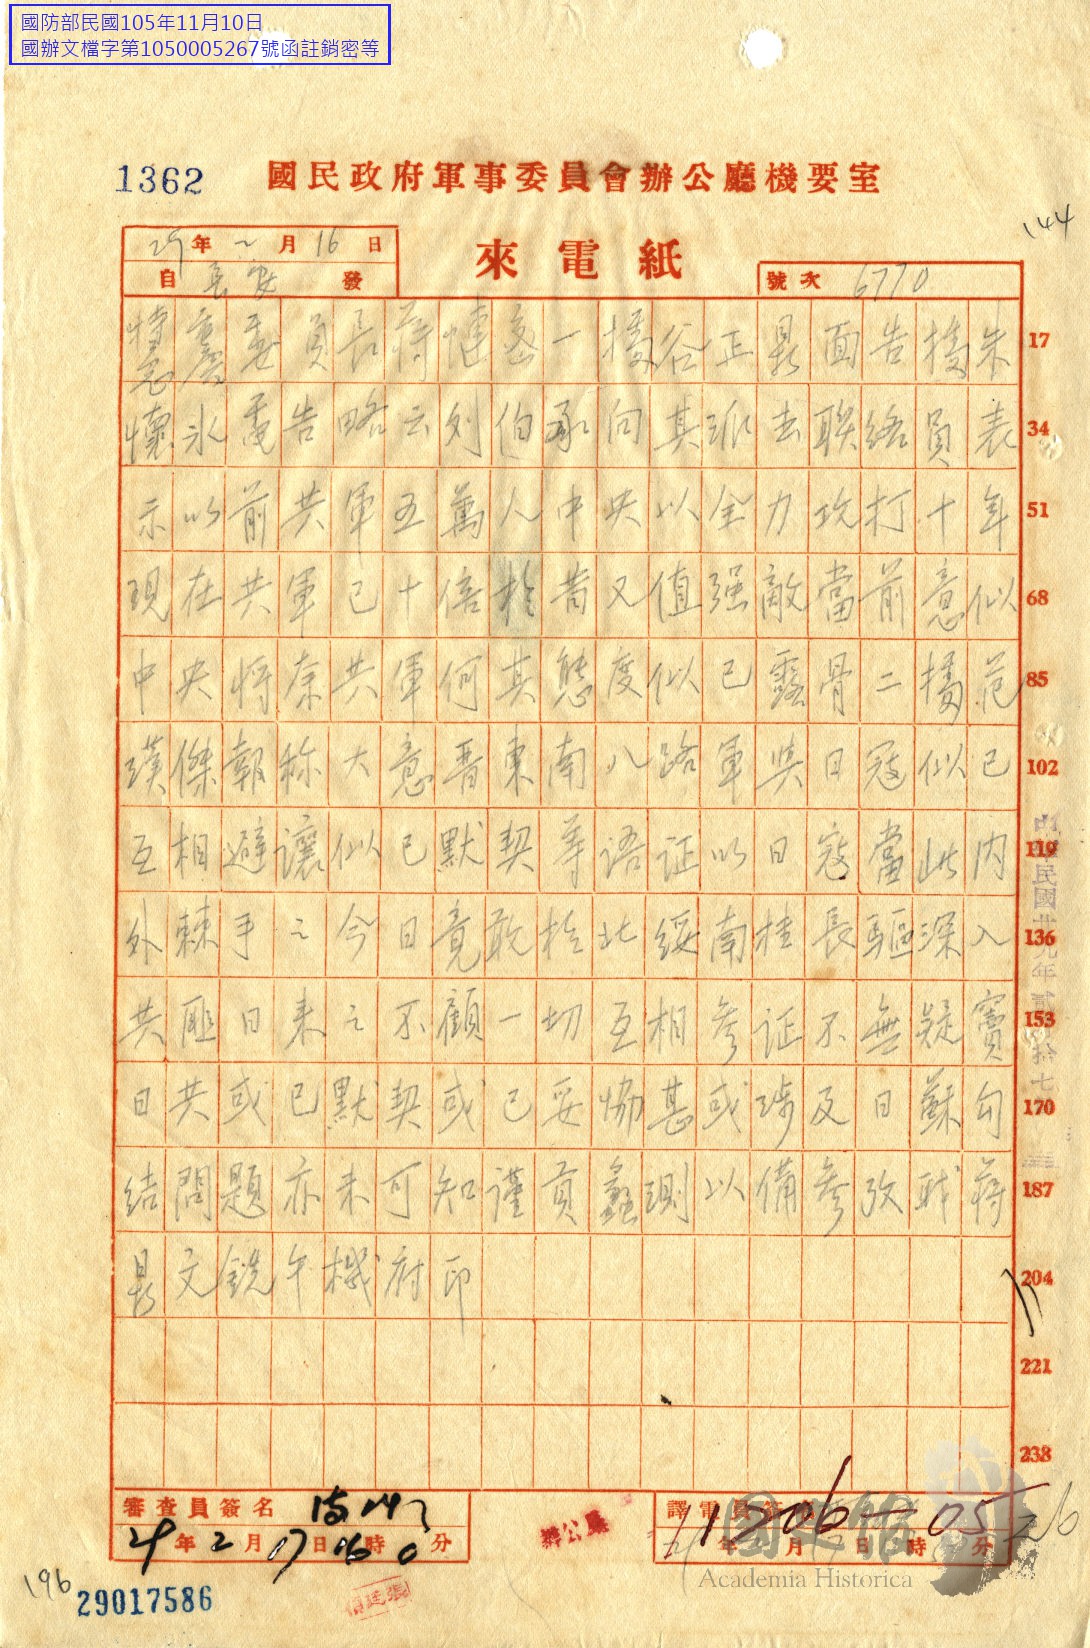 國防部民國105年11月10日
國辦文檔字第1050005267號函註銷密等
1362
國民政府軍事委員會辦公廳機要室
144
29年2月16日
自長安發
來電紙
號次 6770
特急慶委員長蔣健密一據谷正鼎面告接朱 17
懷冰電告略云刘伯承向其派去聯絡員表 34
示以前共軍五萬人中央以全力攻打十年 51
現在共軍已十倍於昔又值强敵當前意似 68
中央將奈共軍何其態度似已露骨二據范 85
漢傑報称大意晋東南八路軍與日寇似已 102
互相避讓似已默契等語证以日寇當此内 119
外棘手之今日竟敢於北綏南桂長驅深入 136
共匪日来之不顧一切互相參证不無疑竇 153
日共或已默契或已妥協甚或涉及日蘇勾 170
结問題亦未可知謹貢蠡测以備參攷职蔣 187
鼎文銑午機府印 204
221
238
中華民國廿九年貳月拾七
審查員簽名
29年2月17日16時0分
譯電員簽名
年月日時分
國史館
Academia Historica
196
29017586